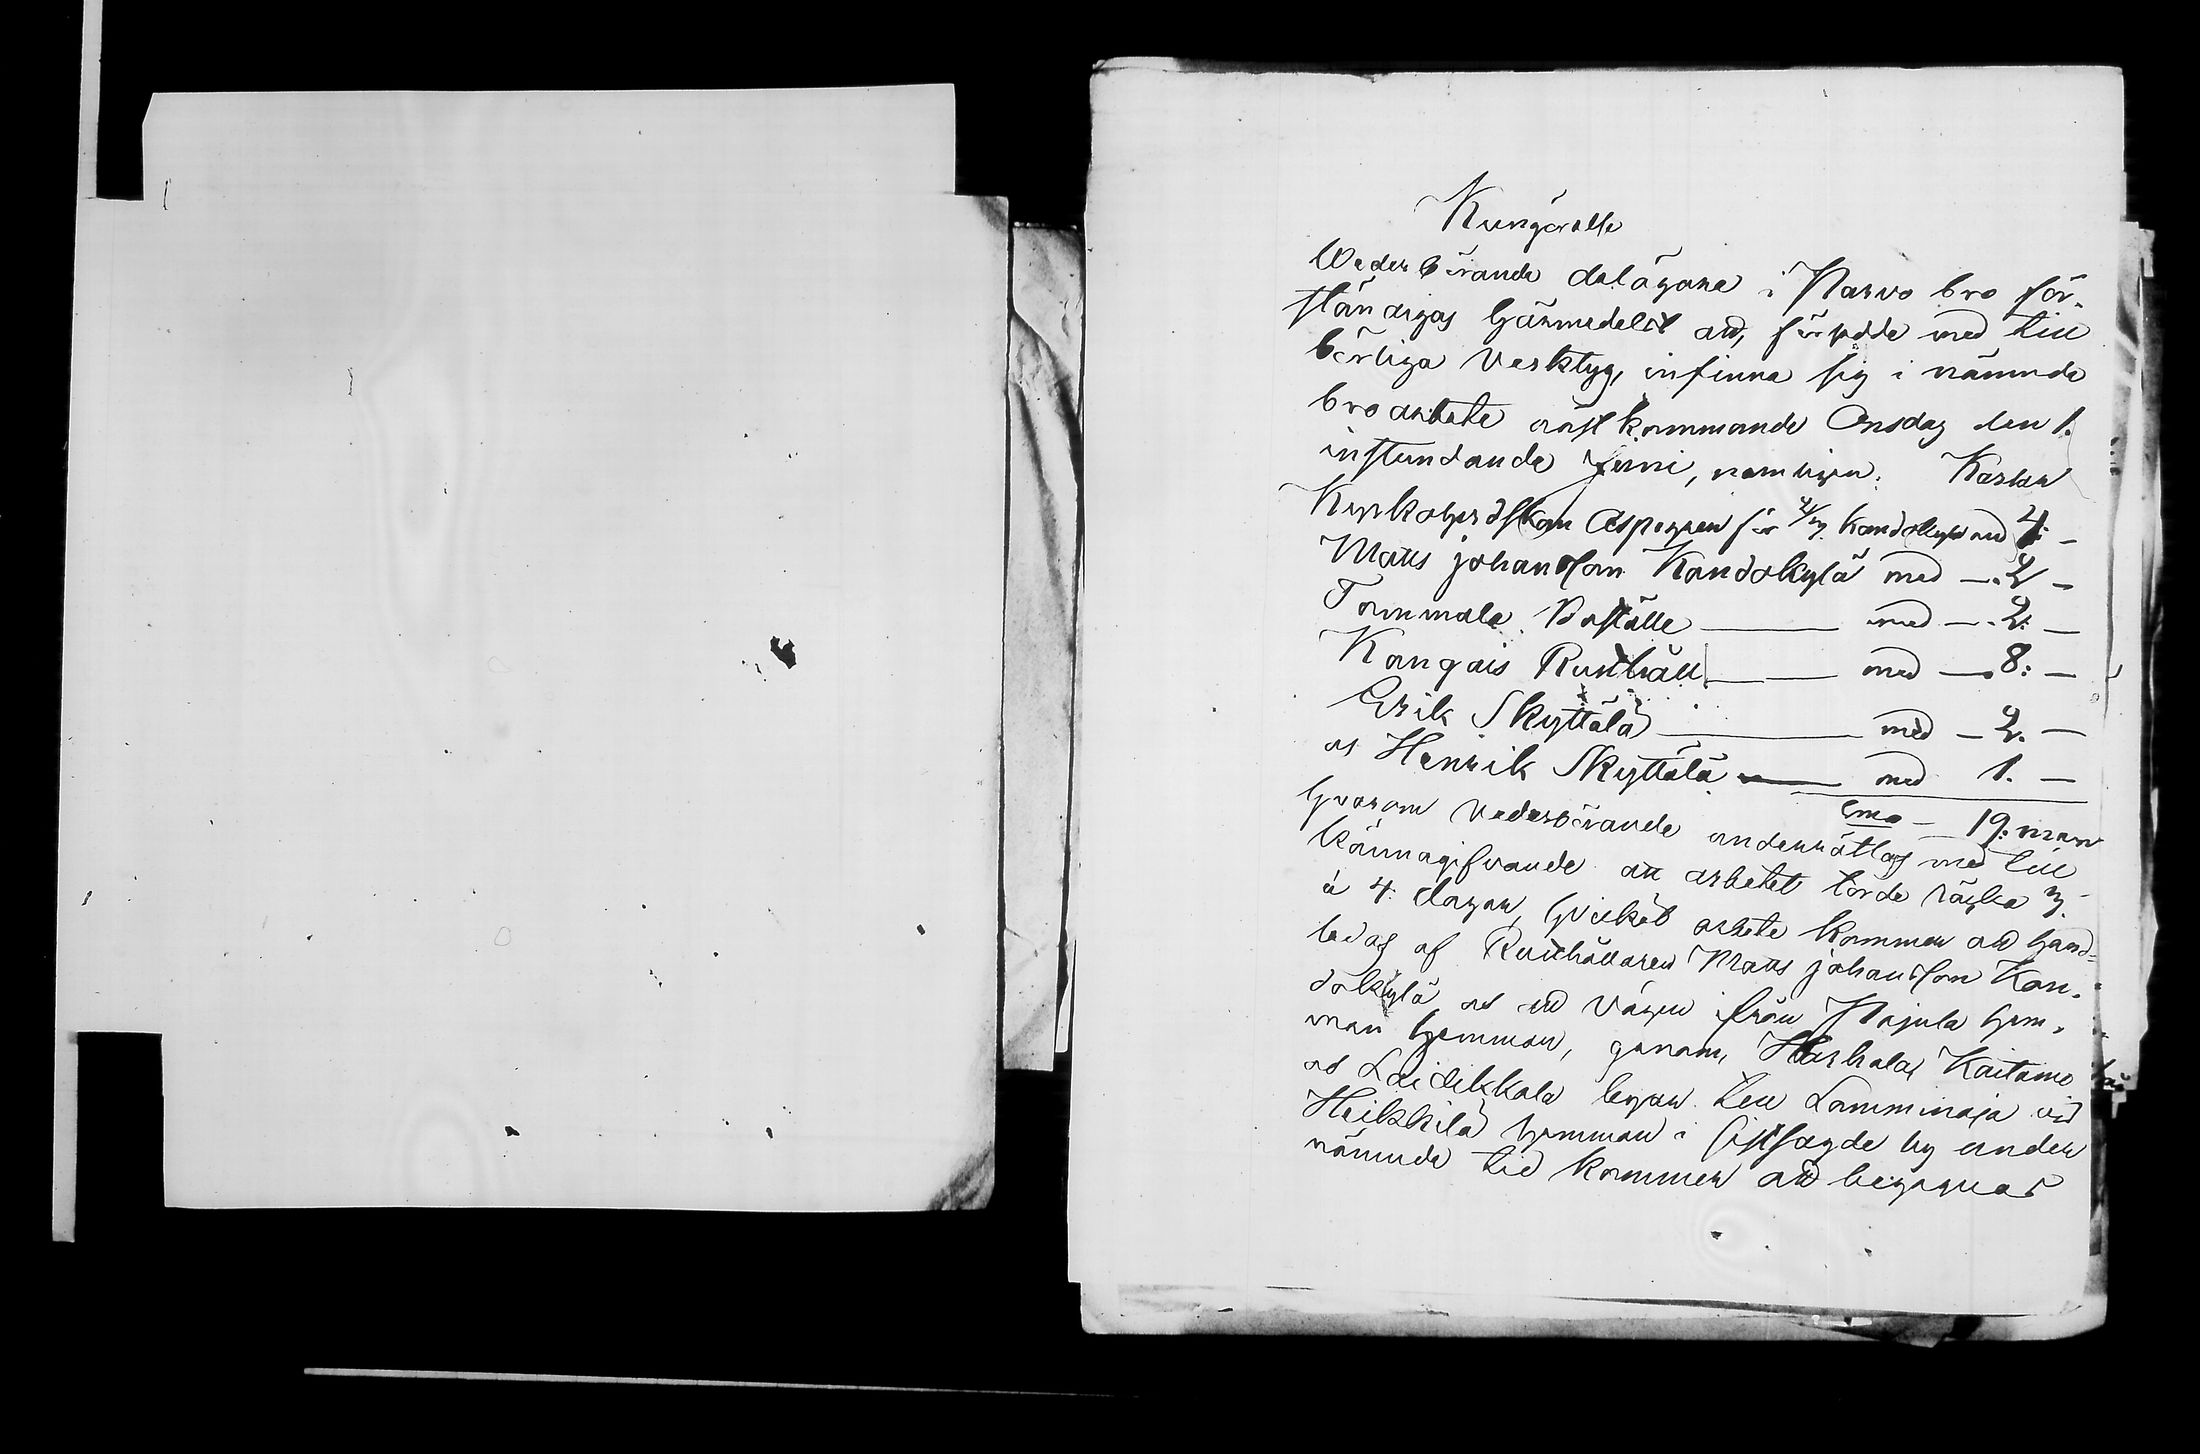 Kungörelse
Wederbörande delägare i Narvo bro för-
ständigas härmedelst att, försedde med till
börliga verktyg, infinna sig i nämnde
broarbete näst kommande Onsdag den 1.
instundande Juni, nemligen: Karlar
Kyrkoherdskan Aspegren för Kandolkylä med 4: —
Matts Johansson Kandolkylä med —. 2 —
Tommola Boställe —— med —. 2. —
Kangais Rusthåll —— med —. 8: —
Erik Skyttälä —— med — 2. —
och Henrik Skyttälä —— med 1. —
Sma — 19: man
hvarom vederbörande underrättas med till
kännagifvande att arbetet torde räcka 3.
à 4 dagar, hvilket arbete kommer att hand-
ledas af Rusthållaren Matts Johansson Kan-
dolkylä och att vägen från Najula hem-
man hemman, genom, Harhala, Kaitamo
och Laidikkala byar till Lamminaja vid
Heikkilä hemman i sistsagde by under
nämnde tid kommer att begagnas